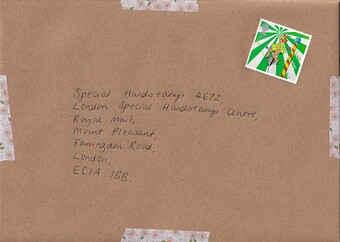 Special Handstamp 4672,
London Special Handstamp Centre,
Royal Mail,
Mount Pleasant,
Farringdon Road,
London,
EC1A 1BB.